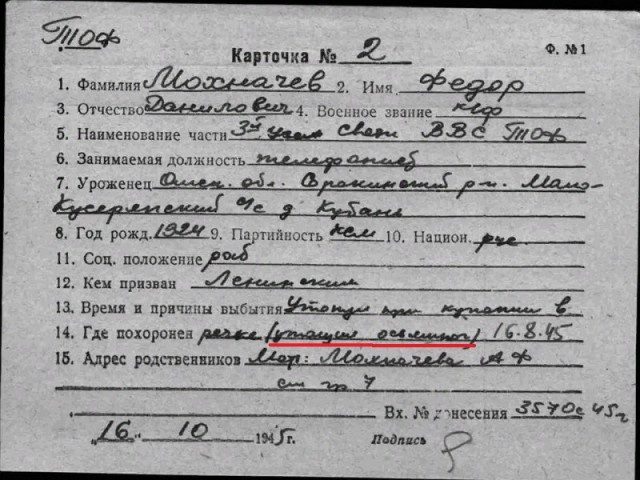 ТОФ
Карточка № 2 Ф. № 1
1. Фамилия Мохначев 2. Имя Федор
3. Отчество Данилович 4. Военное звание кф
5. Наименование части 3й Связи ВВС ТОФ
6. Занимаемая должность телефонист
7. Уроженец Омск. обл. р-н. Мало-
с/с д Кубань
8. Год рожд. 1924 9. Партийность ксм 10. Национ. рус
11. Соц. положение раб
12. Кем призван Ленинским
13. Время и причины выбытия Утонул при купании в
14. Где похоронен речке (утащил осьминог) 16.8.45
15. Адрес родственников Мар: Мохначева А Ф
ст гр 7
Вх. № донесения 3570с 45г
„16“ 10 1945г. Подпись